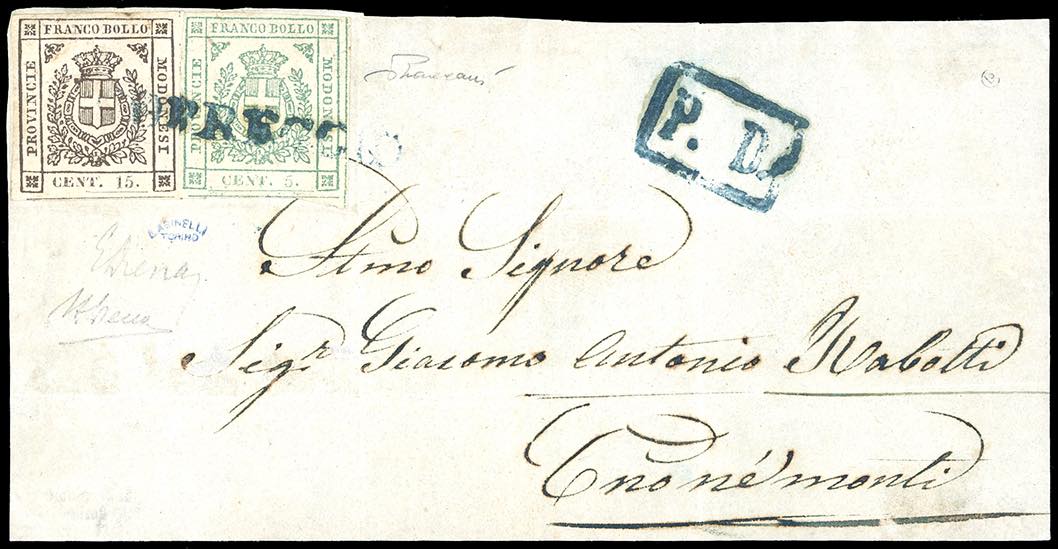 FRANCO BOLLO
PROVINCIE
MODONESI
CENT. 15.
FRANCO BOLLO
PROVINCIE
MODONESI
CENT. 5.
P. D.
ASINELLI
TORINO
Stmo Signore
Sigr Giacomo Antonio Rabotti